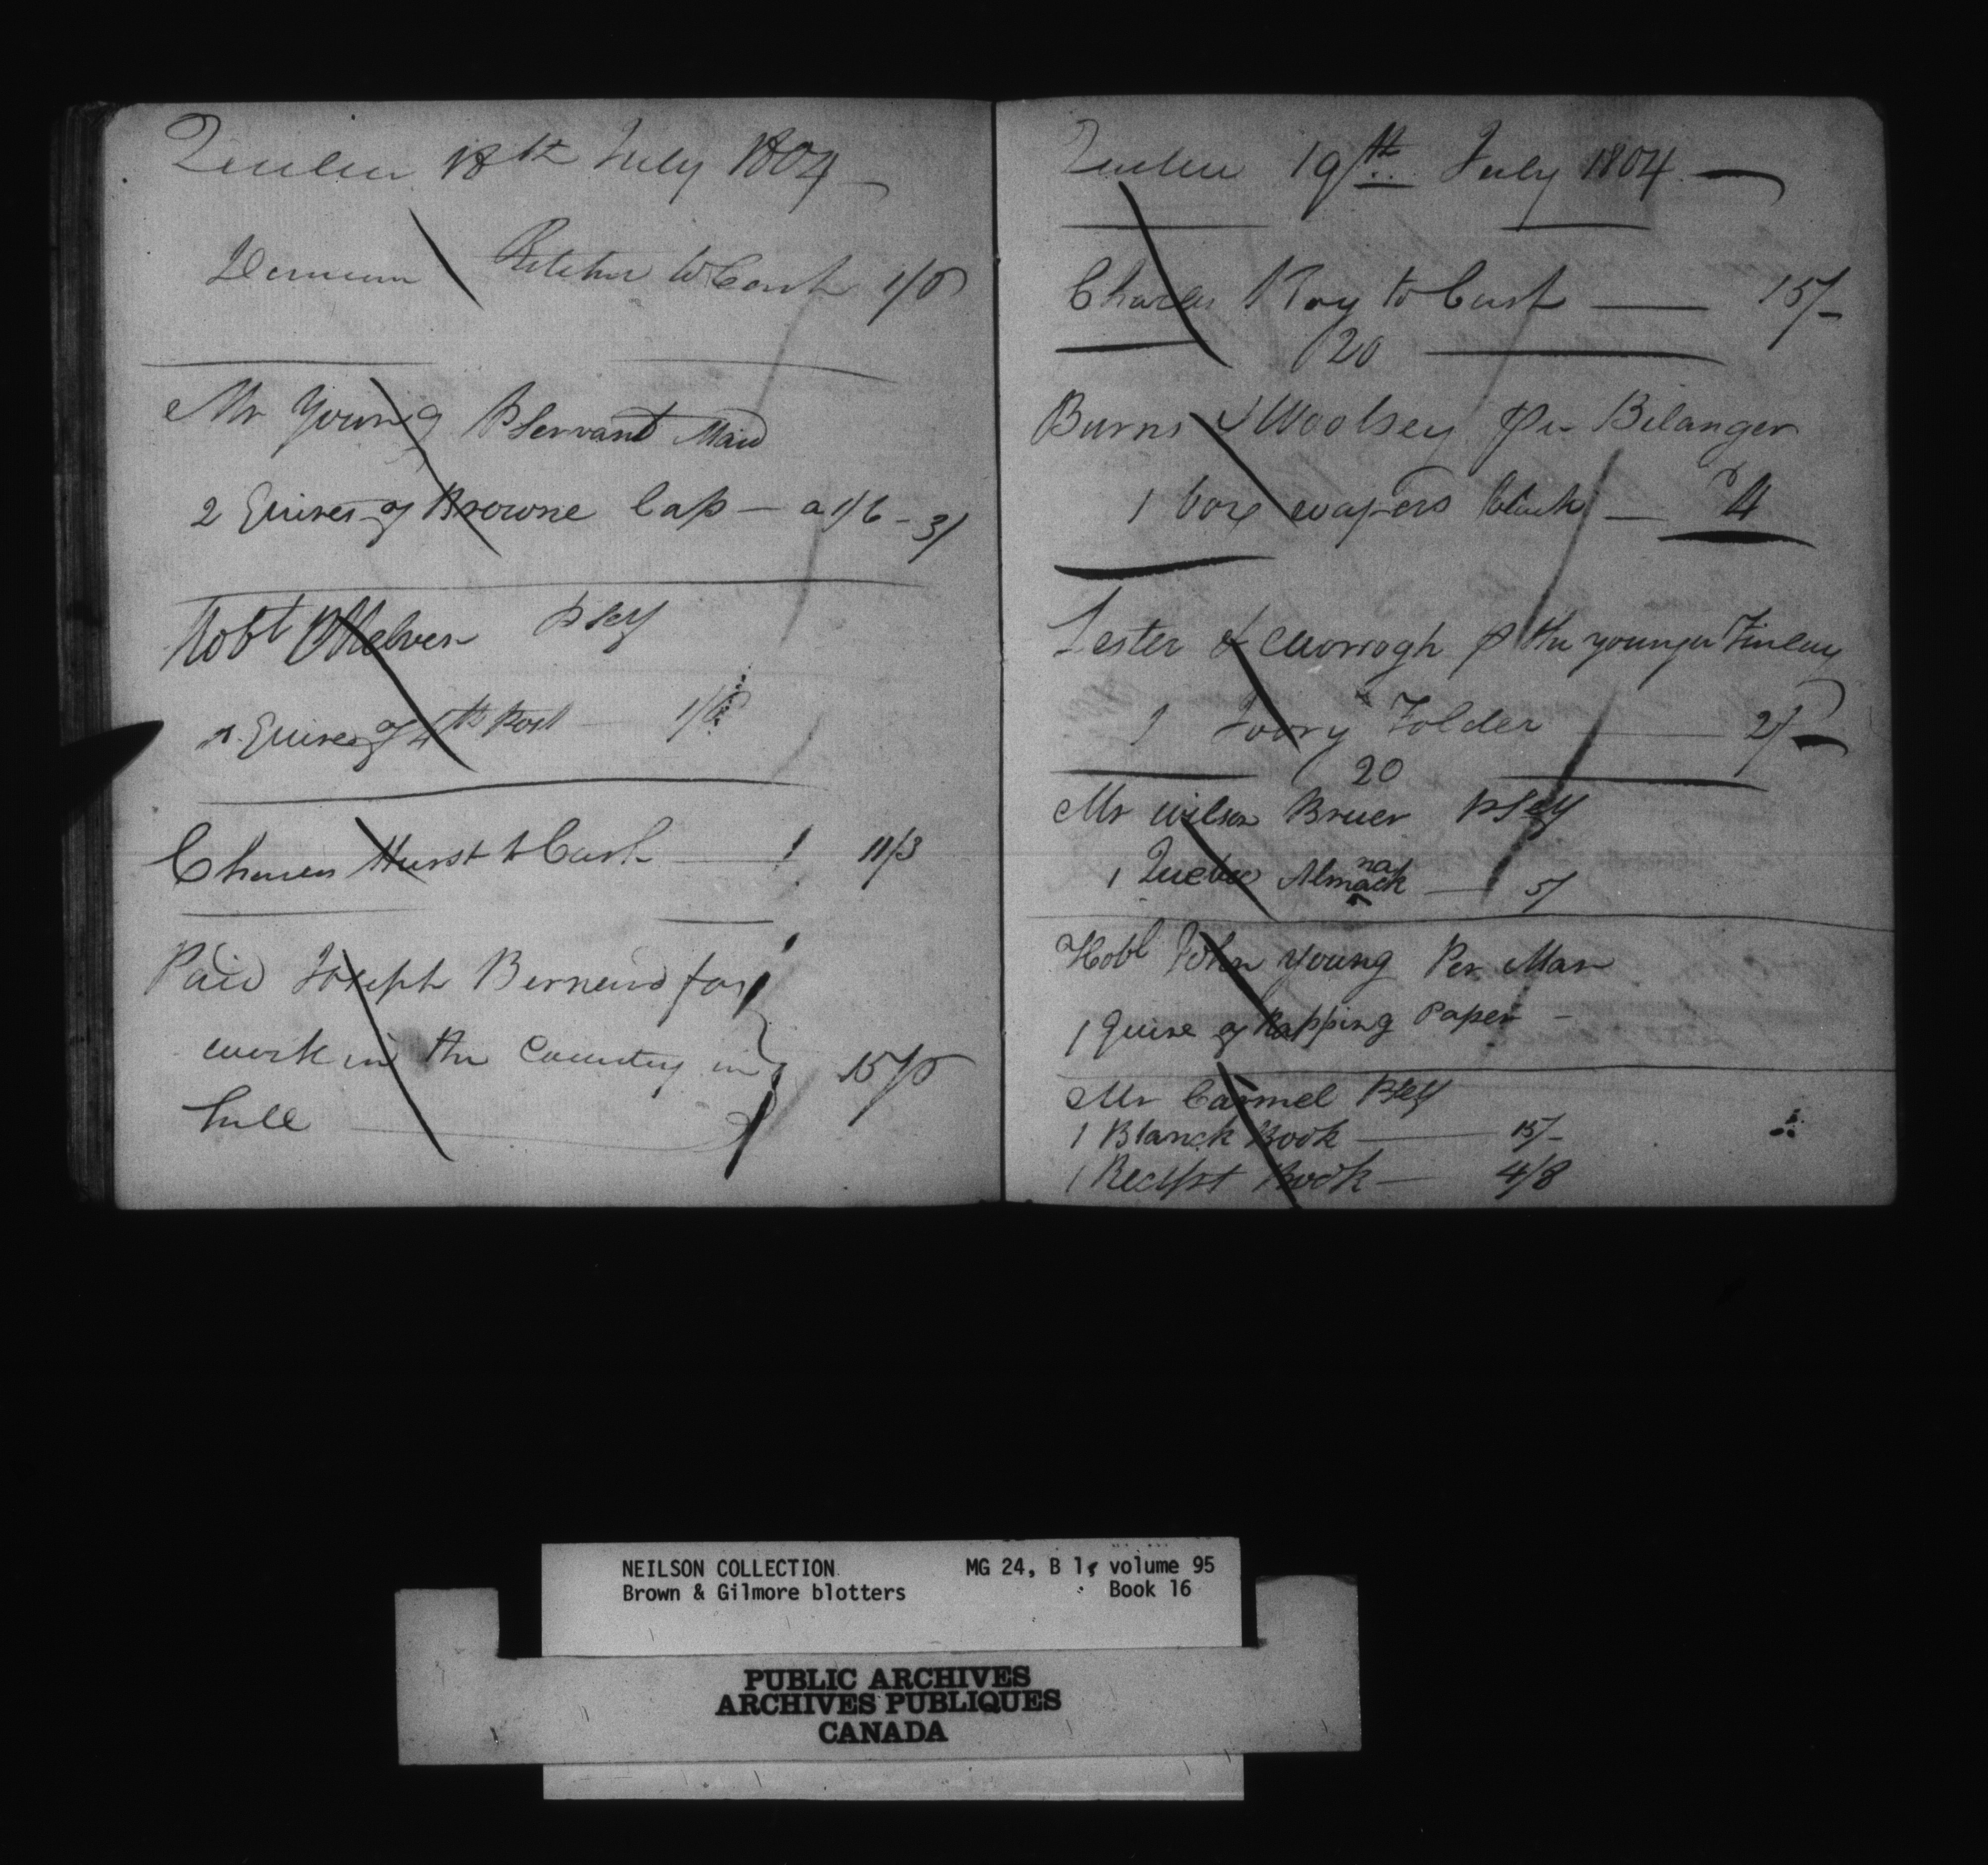 Quebec 18th July 1804
Ritcher to Cash 1/0
Mr Young P Servant Maid
2 Quires of Browne Cap — a 1/6 - 3/
Robt P Self
Quires of 4th Post 1/6
Charles Hurst to Cash 11/3
Paid Joseph Bernard for
work in the Country in
full 15/0
Quebec 19th July 1804
Charles Roy to Cash 15/-
20
Burns & Woolsey Pr Bilanger
1 box wafers black 4
Lester & Morrogh P the younger Finlay
1 Ivory Folder 2/-
20
Mr Wilson Bruer P Self
1 Quebec Almanack 5/
Hobl John Young Per Man
1 Quire of Rapping Paper -
Mr Carmel P Self
1 Blanck Book 15/-
1 Recipt Book 4/8
NEILSON COLLECTION MG 24, B 1, volume 95
Brown & Gilmore blotters Book 16
PUBLIC ARCHIVES
ARCHIVES PUBLIQUES
CANADA